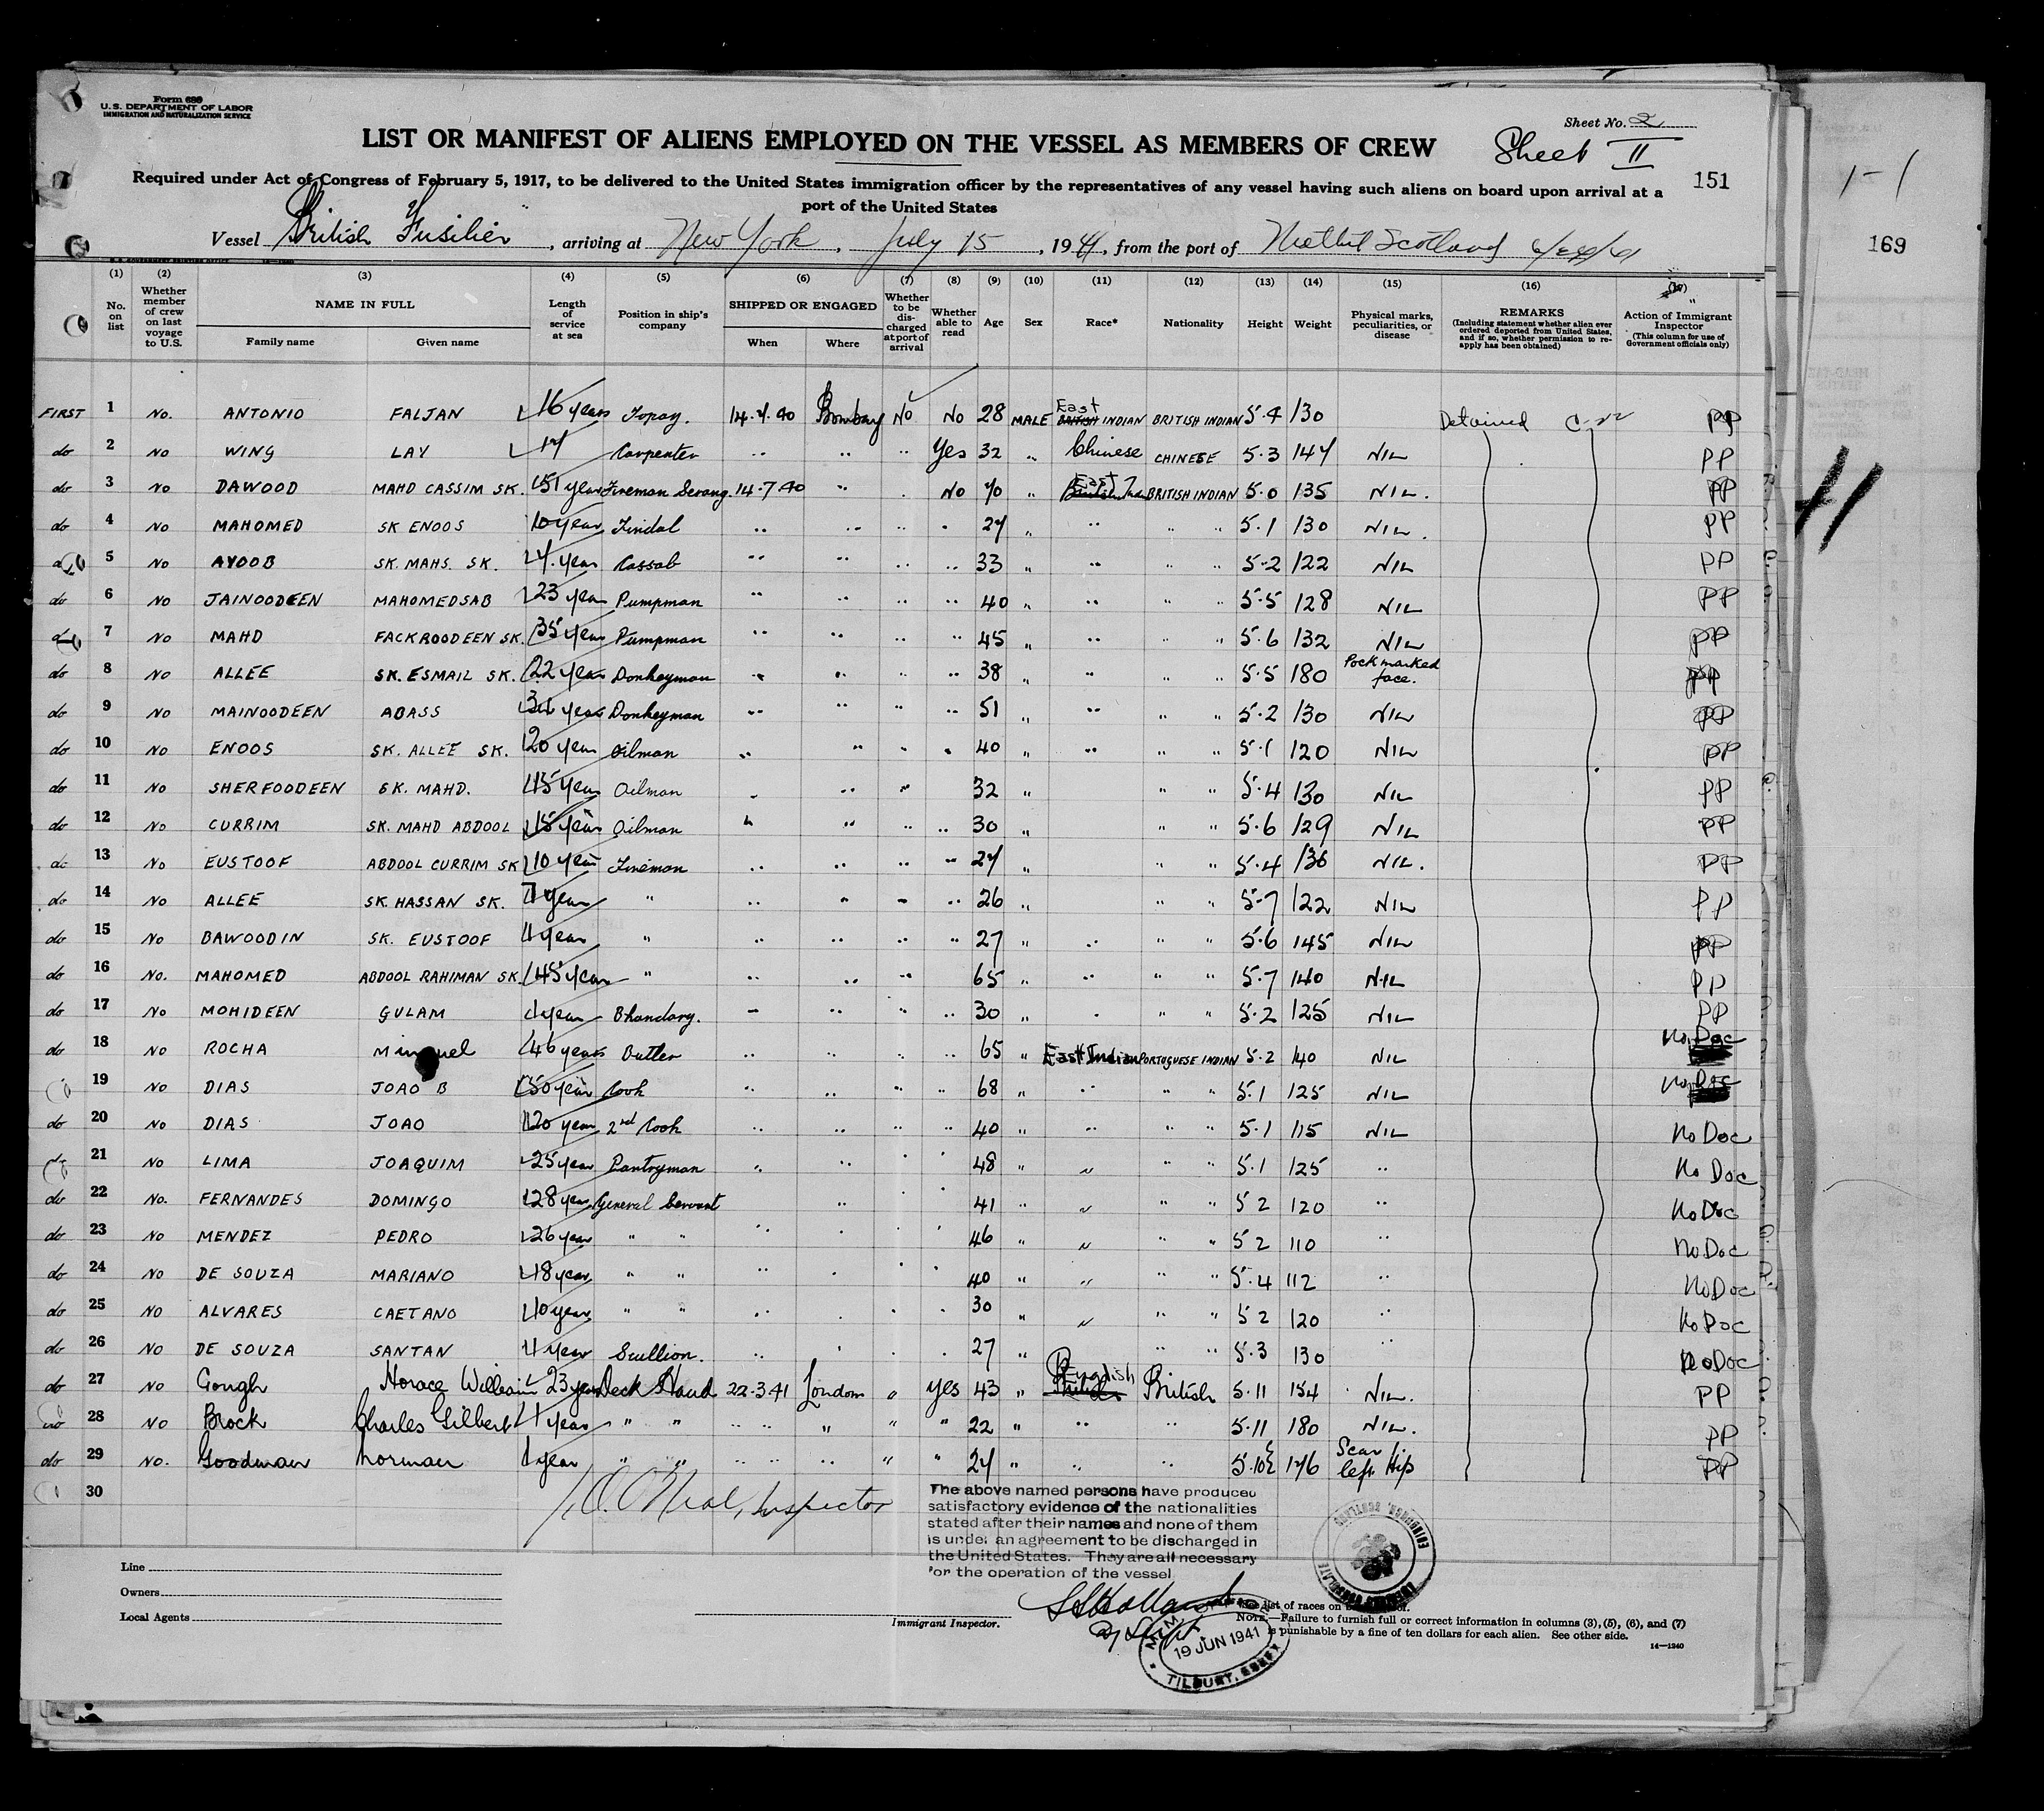 Form 689
U.S. DEPARTMENT OF LABOR
IMMIGRATION AND NATURALIZATION SERVICE
Sheet No. 2
LIST OR MANIFEST OF ALIENS EMPLOYED ON THE VESSEL AS MEMBERS OF CREW Sheet II
Required under Act of Congress of February 5, 1917, to be delivered to the United States immigration officer by the representatives of any vessel having such aliens on board upon arrival at a 151
port of the United States
Vessel British Fusilier, arriving at New York, July 15, 1941, from the port of Methil Scotland
1-1
169
(1) (2) (3) (4) (5) (6) (7) (8) (9) (10) (11) (12) (13) (14) (15) (16) (17)
No. on list Whether member of crew on last voyage to U.S. NAME IN FULL Family name Given name Length of service at sea Position in ship's company SHIPPED OR ENGAGED When Where Whether to be discharged at port of arrival Whether able to read Age Sex Race* Nationality Height Weight Physical marks, peculiarities, or disease REMARKS (Including statement whether alien ever ordered deported from United States, and if so, whether permission to reapply has been obtained) Action of Immigrant Inspector (This column for use of Government officials only)
FIRST 1 No. ANTONIO FALJAN 16 years Topay. 14.7.40 Bombay No No 28 MALE East BRITISH INDIAN BRITISH INDIAN 5.4 130 Detained PP
do 2 No WING LAY 17 Carpenter .. .. .. Yes 32 " Chinese CHINESE 5.3 147 NIL PP
do 3 No DAWOOD MAHD CASSIM SK. 51 year Fireman Serang. 14-7.40 " . No 70 " East BRITISH INDIAN 5.0 135 NIL. PP
do 4 No MAHOMED SK ENOOS 10 year Tindal .. .. .. . 27 " .. " " 5.1 130 NIL. PP
5 No AYOOB SK. MAHS. SK. 4. year Cassab .. .. .. .. 33 " .. " " 5-2 122 NIL PP
do 6 No JAINOODEEN MAHOMEDSAB 23 year Pumpman .. .. .. .. 40 " .. " " 5.5 128 NIL PP
7 No MAHD FACKROODEEN SK. 35 year Pumpman .. .. .. .. 45 " .. " 5.6 132 NIL PP
do 8 No ALLEE SK. ESMAIL SK. 22 year Donkeyman .. .. .. .. 38 " .. " " 5.5 180 Pock marked face. PP
do 9 No MAINOODEEN ABASS year Donkeyman .. .. .. .. 51 " " " 5.2 130 NIL PP
do 10 No ENOOS SK. ALLEE SK. 20 year Oilman .. .. . . 40 " .. " " 5.1 120 NIL PP
do 11 No SHERFOODEEN SK. MAHD. 15 year Oilman .. .. 32 " " " 5.4 130 NIL PP
do 12 No CURRIM SK. MAHD ABDOOL 15 year Oilman " .. .. .. 30 " " " 5.6 129 NIL PP
do 13 No EUSTOOF ABDOOL CURRIM SK 10 year Fireman .. .. .. .. 27 " " " 5.4 136 NIL. PP
do 14 No ALLEE SK. HASSAN SK. 7 year " .. .. .. .. 26 " " " 5-7 122 NIL PP
do 15 No BAWOODIN SK. EUSTOOF year " .. .. .. .. 27 " .. " " 5.6 145 NIL PP
do 16 No. MAHOMED ABDOOL RAHIMAN SK. 45 year " .. .. .. 65 " .. " " 5.7 140 NIL PP
do 17 No MOHIDEEN GULAM year Bhandary. .. .. .. .. 30 " . " " 5.2 125 NIL PP
do 18 No ROCHA 46 years Butler .. .. .. .. 65 " East Indian PORTUGUESE INDIAN 5.2 140 NIL No Doc
19 No DIAS JOAO B 50 year Cook .. .. .. .. 68 " .. " " 5.1 125 NIL No Doc
do 20 No DIAS JOAO 20 year 2nd Cook .. .. .. .. 40 " .. " " 5.1 115 NIL No Doc
21 No LIMA JOAQUIM 25 year Pantryman .. .. 48 " " " " 5.1 125 .. No Doc
do 22 No. FERNANDES DOMINGO 28 year General Servant .. 41 " " " " 5 2 120 .. No Doc
do 23 No MENDEZ PEDRO 26 year " " .. .. 46 " " " " 5 2 110 .. No Doc
do 24 No DE SOUZA MARIANO 18 year " " .. . 40 " " " " 5.4 112 .. No Doc
do 25 NO ALVARES CAETANO 10 year " " .. . 30 " " " " 5 2 120 .. No Doc
do 26 NO DE SOUZA SANTAN year Scullion. .. . 27 " " " 5.3 130 .. No Doc
do 27 NO Gough Horace William 23 year Deck Hand 22.3.41 London " Yes 43 " English British 5.11 154 NIL. PP
28 NO Brock Charles Gilbert 1 year " " .. .. " " " 22 " .. .. 5.11 180 NIL. PP
do 29 NO. Goodman Norman 1 year " " .. .. .. " " 24 " .. .. 5.10½ 176 Scar l. left Hip PP
30
O'Neal, Inspector
The above named persons have produced
satisfactory evidence of the nationalities
stated after their names and none of them
is under an agreement to be discharged in
the United States. They are all necessary
for the operation of the vessel
Line
Owners
Local Agents
Immigrant Inspector.
list of races on
NOTE.—Failure to furnish full or correct information in columns (3), (5), (6), and (7)
is punishable by a fine of ten dollars for each alien. See other side.
14—1240
19 JUN 1941
TILBURY, ESSEX